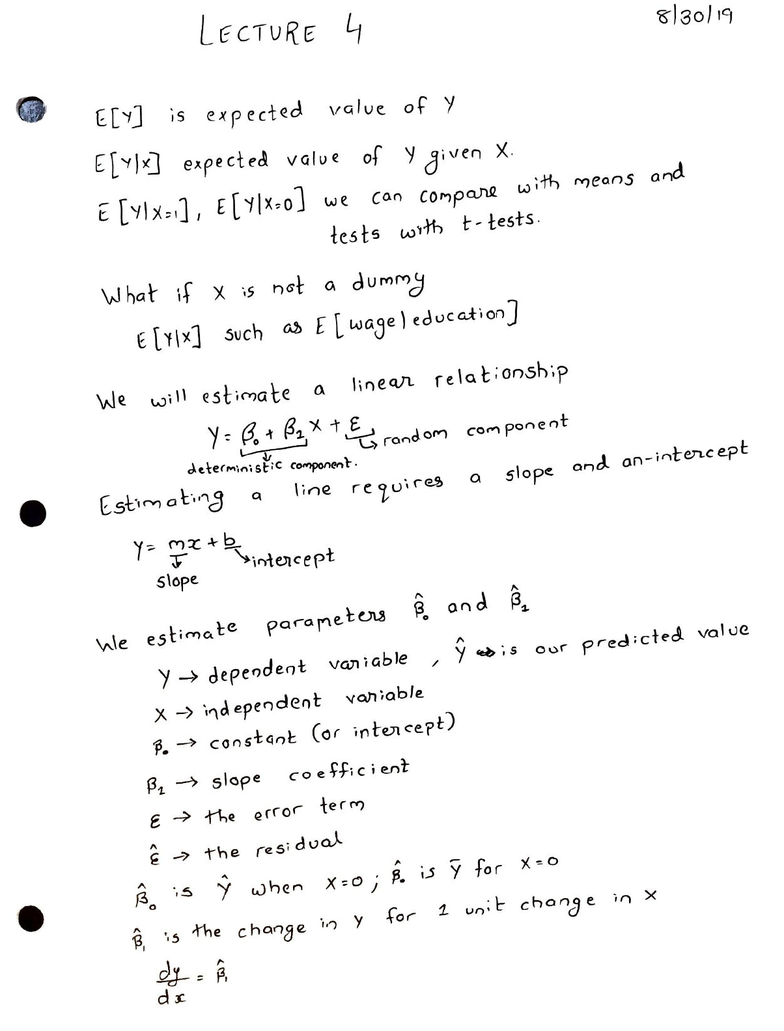 LECTURE 4
8/30/19
E[Y] is expected value of Y
E[Y|X] expected value of Y given X.
E[Y|X=1], E[Y|X=0] we can compare with means and
tests with t-tests.
What if X is not a dummy
E[Y|X] such as E[wage|education]
We will estimate a linear relationship
Y = β₀ + β₁X + ε
↳ random component
deterministic component.
Estimating a line requires a slope and an-intercept
Y = mx + b
↘ intercept
slope
We estimate parameters β̂₀ and β̂₁
Y → dependent variable, Ŷ is our predicted value
X → independent variable
β₀ → constant (or intercept)
β₁ → slope coefficient
ε → the error term
ε̂ → the residual
β̂₀ is Ŷ when X=0; β̂₀ is Ȳ for X=0
β̂₁ is the change in Y for 1 unit change in X
dy/dx = β̂₁